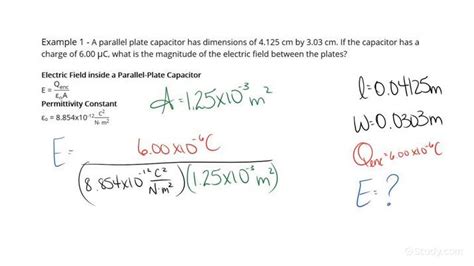 Example 1 - A parallel plate capacitor has dimensions of 4.125 cm by 3.03 cm. If the capacitor has a
charge of 6.00 μC, what is the magnitude of the electric field between the plates?
Electric Field inside a Parallel-Plate Capacitor
E = Qenc / ε₀A
Permittivity Constant
ε₀ = 8.854x10⁻¹² C²/N·m²
A = 1.25x10⁻³ m²
l = 0.04125m
W = 0.0303m
Qenc = 6.00x10⁻⁶C
E = ?
E = 6.00x10⁻⁶C
(8.854x10⁻¹² C²/N·m²)(1.25x10⁻³ m²)
Study.com